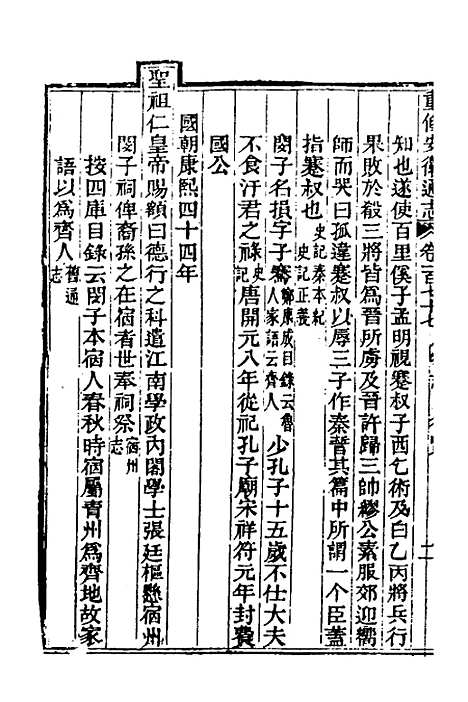 重修安徽通志 卷一百七十七
知也遂使百里傒子孟明視蹇叔子西乞術及白乙丙將兵行
果敗於殽三將皆爲晉所虜及晉許歸三帥繆公素服郊迎嚮
師而哭曰孤違蹇叔以辱三子作秦晉其篇中所謂一个臣蓋
指蹇叔也史記秦本紀史記正義
閔子名損字子騫鄭康成目錄云魯人家語云齊人少孔子十五歲不仕大夫
不食汙君之祿史記唐開元八年從祀孔子廟宋祥符元年封費
國公
國朝康熙四十四年
聖祖仁皇帝賜額曰德行之科遣江南學政內閣學士張廷樞懸宿州
閔子祠俾裔孫之在宿者世奉祠祭宿州志
按四庫目錄云閔子本宿人春秋時宿屬靑州爲齊地故家
語以爲齊人舊通志